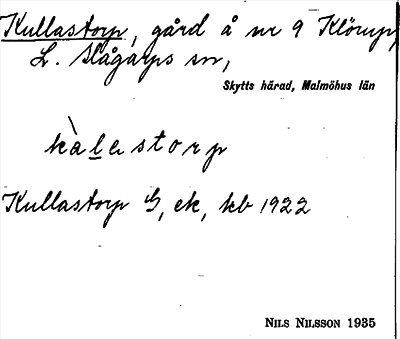 Kullastorp, gård å nr 9 Klörup,
L. Slågarps sn,
Skytts härad, Malmöhus län
kàlestorp
Kullastorp G, ek, kb 1922
NILS NILSSON 1935